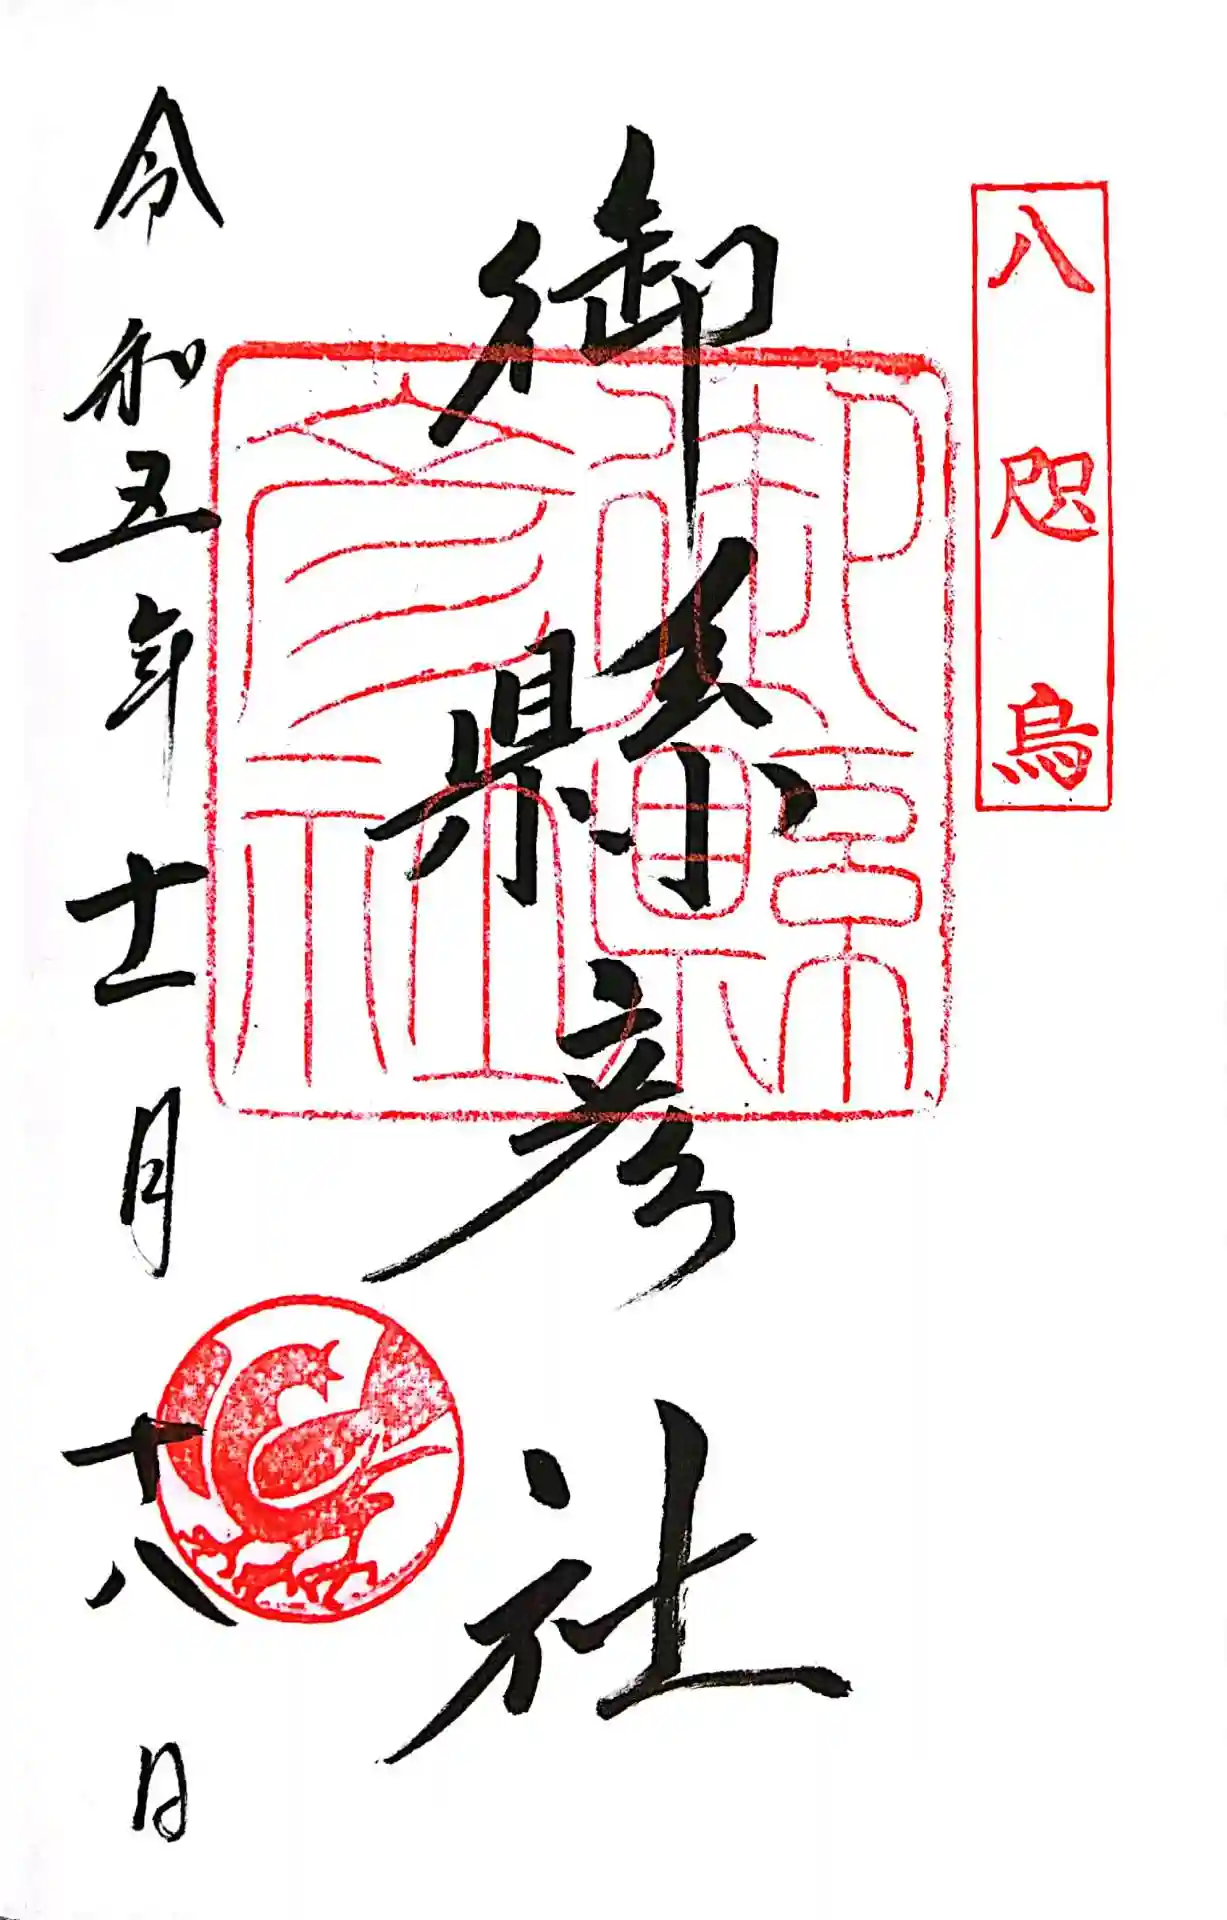 八咫烏
御縣彦社
御縣
彦社
令和五年十二月十八日